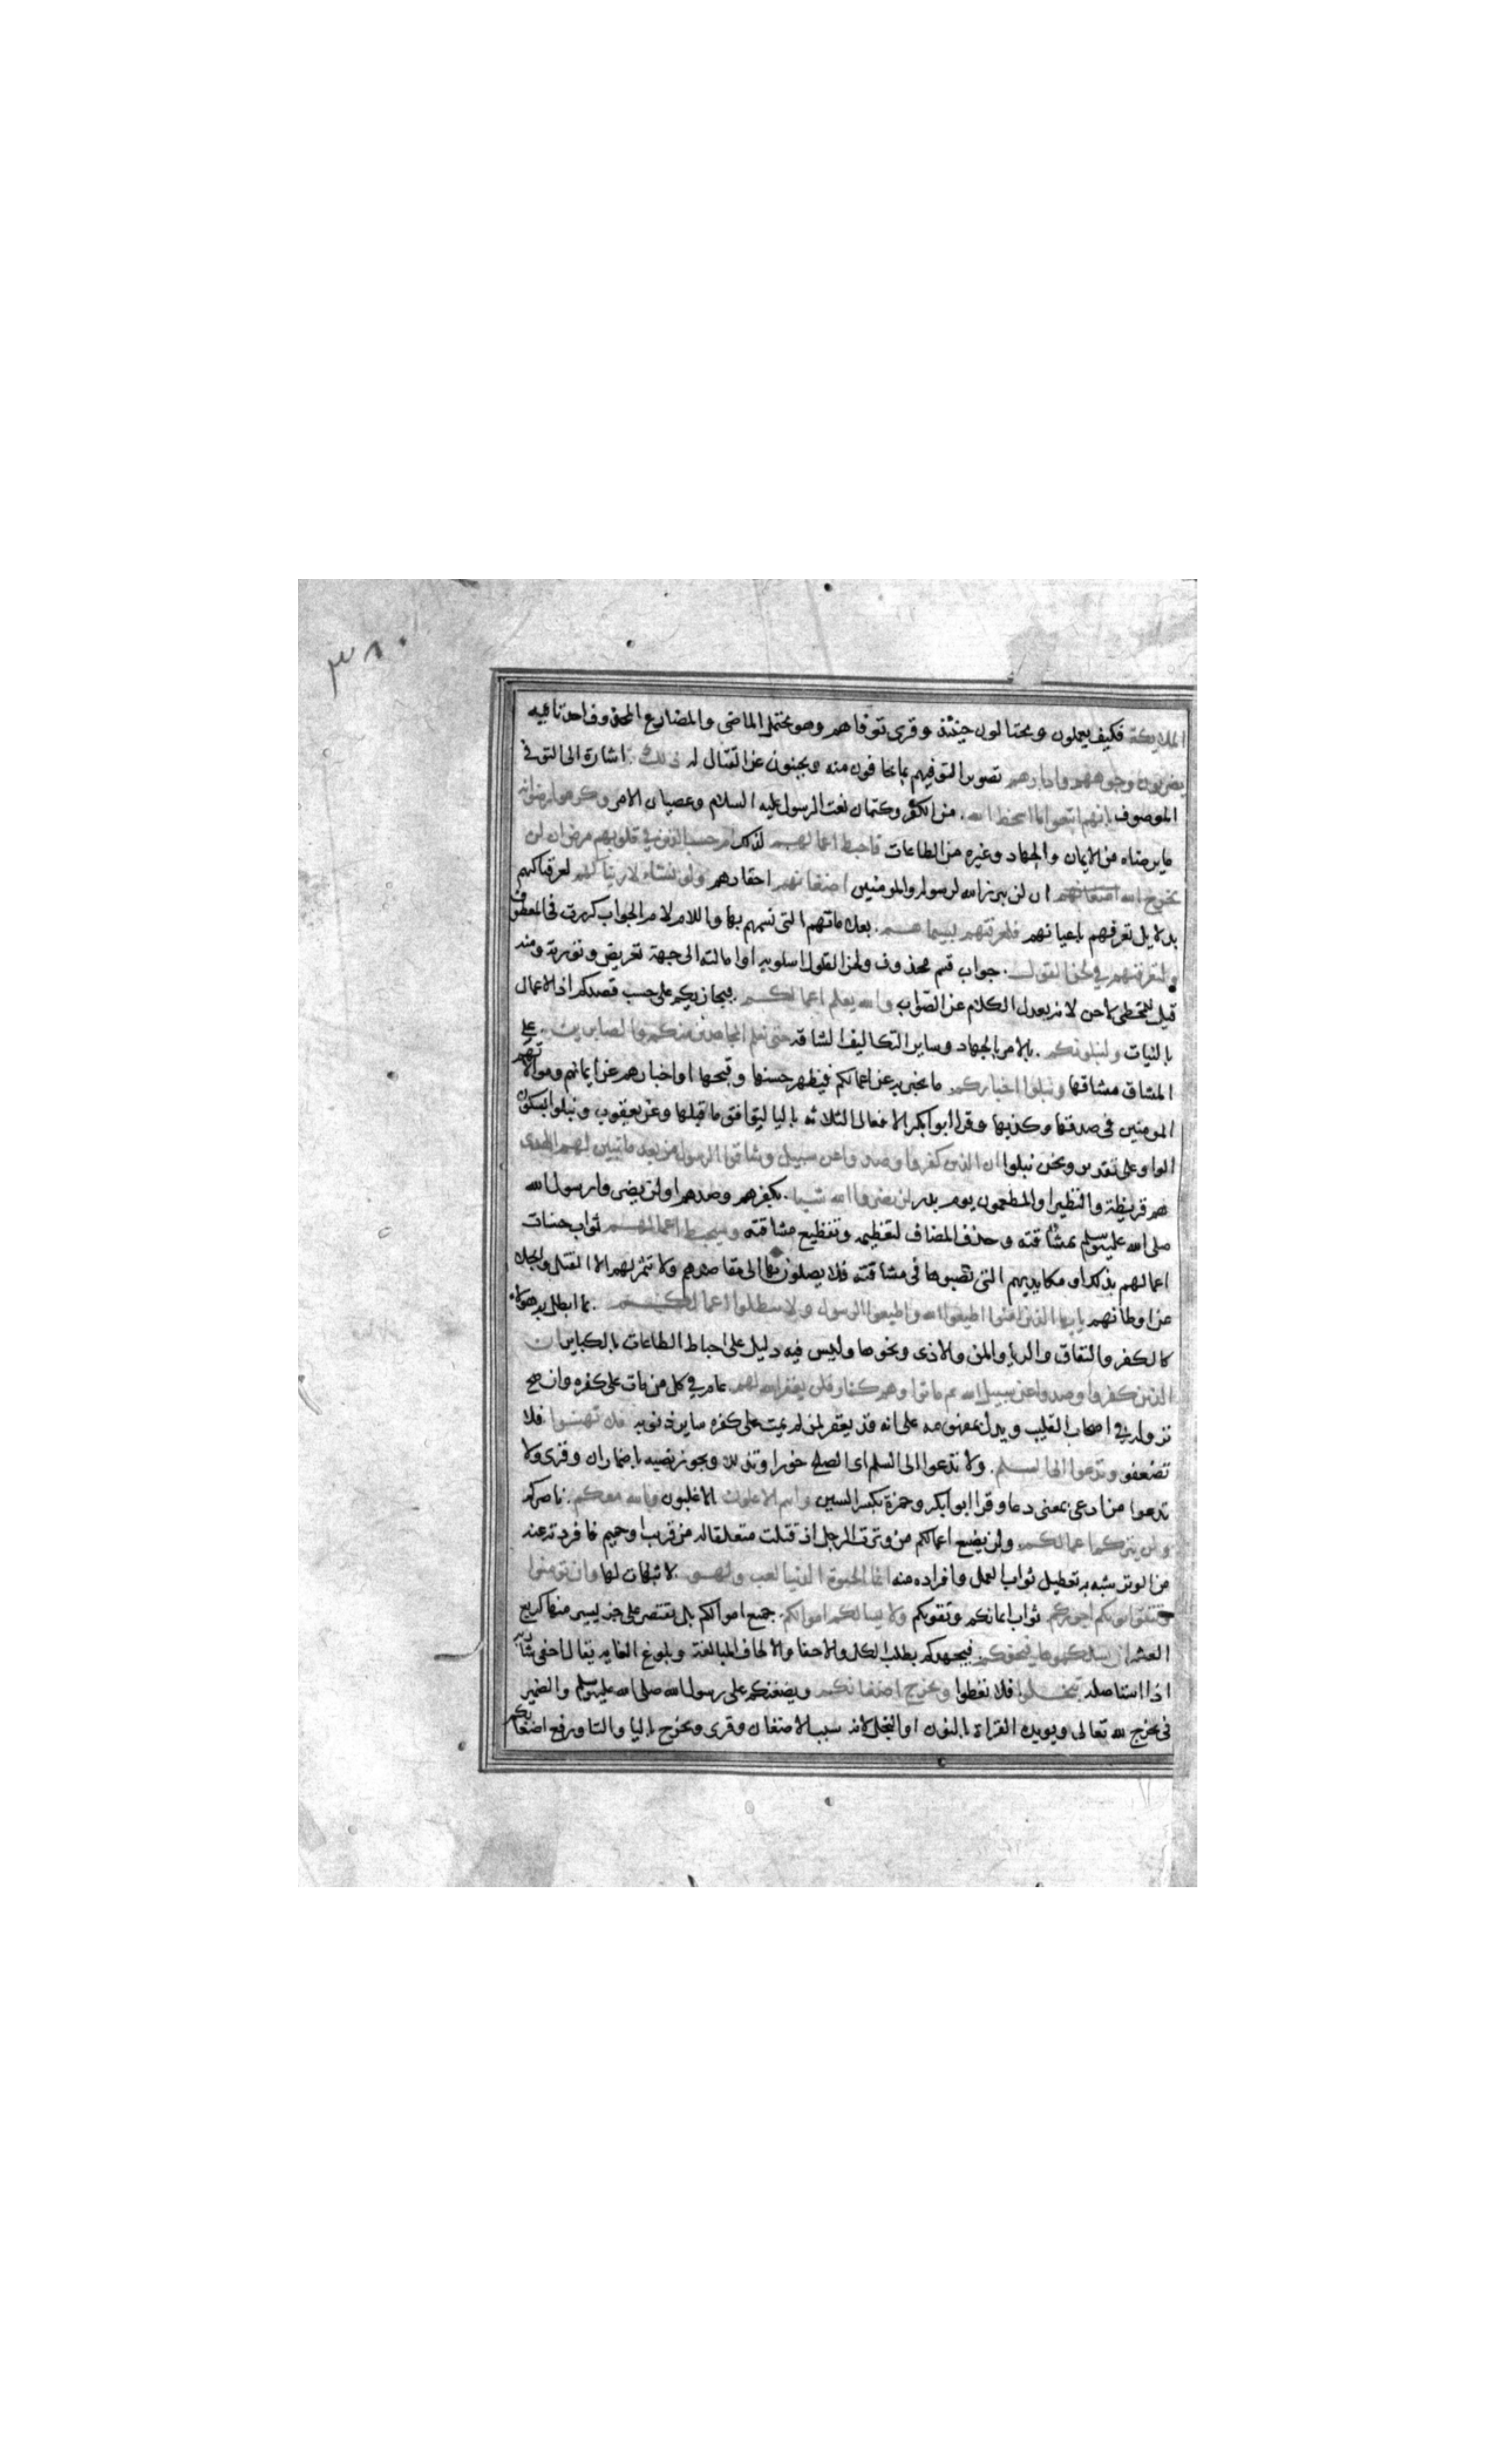 ٣٨٠
الملايكة فكيف يعملون ويحتالون حينئذ وقرى توفاهم وهو يحتمل الماضى والمضارع المحذوف احد تائيه
يضربون وجوههم وادبارهم تصوير لتوفيهم بما يخافون منه ويجبنون عن القتال له ذلك اشارة الى التوفى
الموصوف بانهم اتبعوا ما اسخط الله من الكفر وكتمان نعت الرسول عليه السلام وعصيان الامر وكرهوا رضوانه
ما يرضاه من الايمان والجهاد وغيره من الطاعات فاحبط اعمالهم لذلك ام حسب الذين في قلوبهم مرض ان لن
يخرج الله اضغانهم ان لن يبرز الله لرسوله والمومنين اضغانهم احقادهم ولو نشاء لاريناكهم لعرفناكهم
بدلايل تعرفهم باعيانهم فلعرفتهم بسيماهم بعلاماتهم التى نسمهم بها واللام لام الجواب كررت فى المعطوف
ولتعرفنهم في لحن القول جواب قسم محذوف ولحن القول اسلوبه او امالته الى جهة تعريض وتورية ومنه
قيل للمخطى لاحن لانه يعدل الكلام عن الصواب والله يعلم اعمالكم فيجازيكم على حسب قصدكم اذ الاعمال
بالنيات ولنبلونكم بالامر بالجهاد وساير التكاليف الشاقه حتى نعلم المجاهدين منكم والصابرين على
المشاق مشاقها ونبلوا اخباركم ما يخبر به عن اعمالكم فيظهر حسنها وقبحها او اخبارهم عن ايمانهم وموالاتهم
المومنين فى صدقها وكذبها وقرا ابوابكر الافعال الثلاثه باليا ليوافق ما قبلها وعن يعقوب ونبلوا بسكون
الواو على تقدير ونحن نبلوا ان الذين كفروا وصدوا عن سبيل وشاقوا الرسول من بعد ما تبين لهم الهدى
هم قريظة والنظير او المطعمون يوم بدر لن يضروا الله شيا بكفرهم وصدهم او لن يضروا رسول الله
صلى الله عليه وسلم بمشاقته وحذف المضاف لتعظيمه وتفظيع مشاقته وسيحبط اعمالهم ثواب حسنات
اعمالهم بذلك او مكايديهم التى نصبوها فى مشاقته فلا يصلون بها الى مقاصدهم ولا تثمر لهم الا القتل والجلاء
عن اوطانهم يايها الذين امنوا اطيعوا الله واطيعوا الرسول ولا تبطلوا اعمالكم بما ابطل به هولاء
كالكفر والنفاق والريا والمن والاذى ونحوها وليس فيه دليل على احباط الطاعات بالكباير ان
الذين كفروا وصدوا عن سبيل الله ثم ماتوا وهم كفار فلن يغفر الله لهم عام في كل من مات على كفره وان صح
نزوله في اصحاب القليب ويدل بمفهومه على انه قد يغفر لمن لم يمت على كفره ساير ذنوبه فلا تهنوا فلا
تضعفو وتدعوا الى السلم ولا تدعوا الى السلم اى الصلح خورا وتذللا ويجوز نصبه باضمار ان وقرى ولا
تدعوا من ادعى بمعنى دعا وقرا ابوابكر وحمزة بكسر السين وانتم الاعلون الاغلبون والله معكم ناصركم
ولن يتركم اعمالكم ولن يضيع اعمالكم من وترت الرجل اذ قتلت متعلقا له من قريب او حميم فافردته عنه
من الوتر شبه به تعطيل ثواب العمل وافراده منه انما الحيوة الدنيا لعب ولهو لا ثبات لها وان تومنوا
وتتقوا يوتكم اجوركم ثواب ايمانكم وتقويكم ولا يسالكم اموالكم جميع اموالكم بل يقتصر على جز يسير منها كربع
العشر ان يسالكموها فيحفكم فيجهدكم بطلب الكل والاحفا والالحاف المبالغة وبلوغ الغايه يقال احفى شاربه
اذا استاصله تبخلوا فلا تعطوا ويخرج اضغانكم ويضغنكم على رسول الله صلى الله عليه وسلم والضمير
فى يخرج لله تعالى ويويده القراة بالنون او البخل لانه سبب الاضغان وقرى ويخرج باليا والتا ورفع اضغانكم